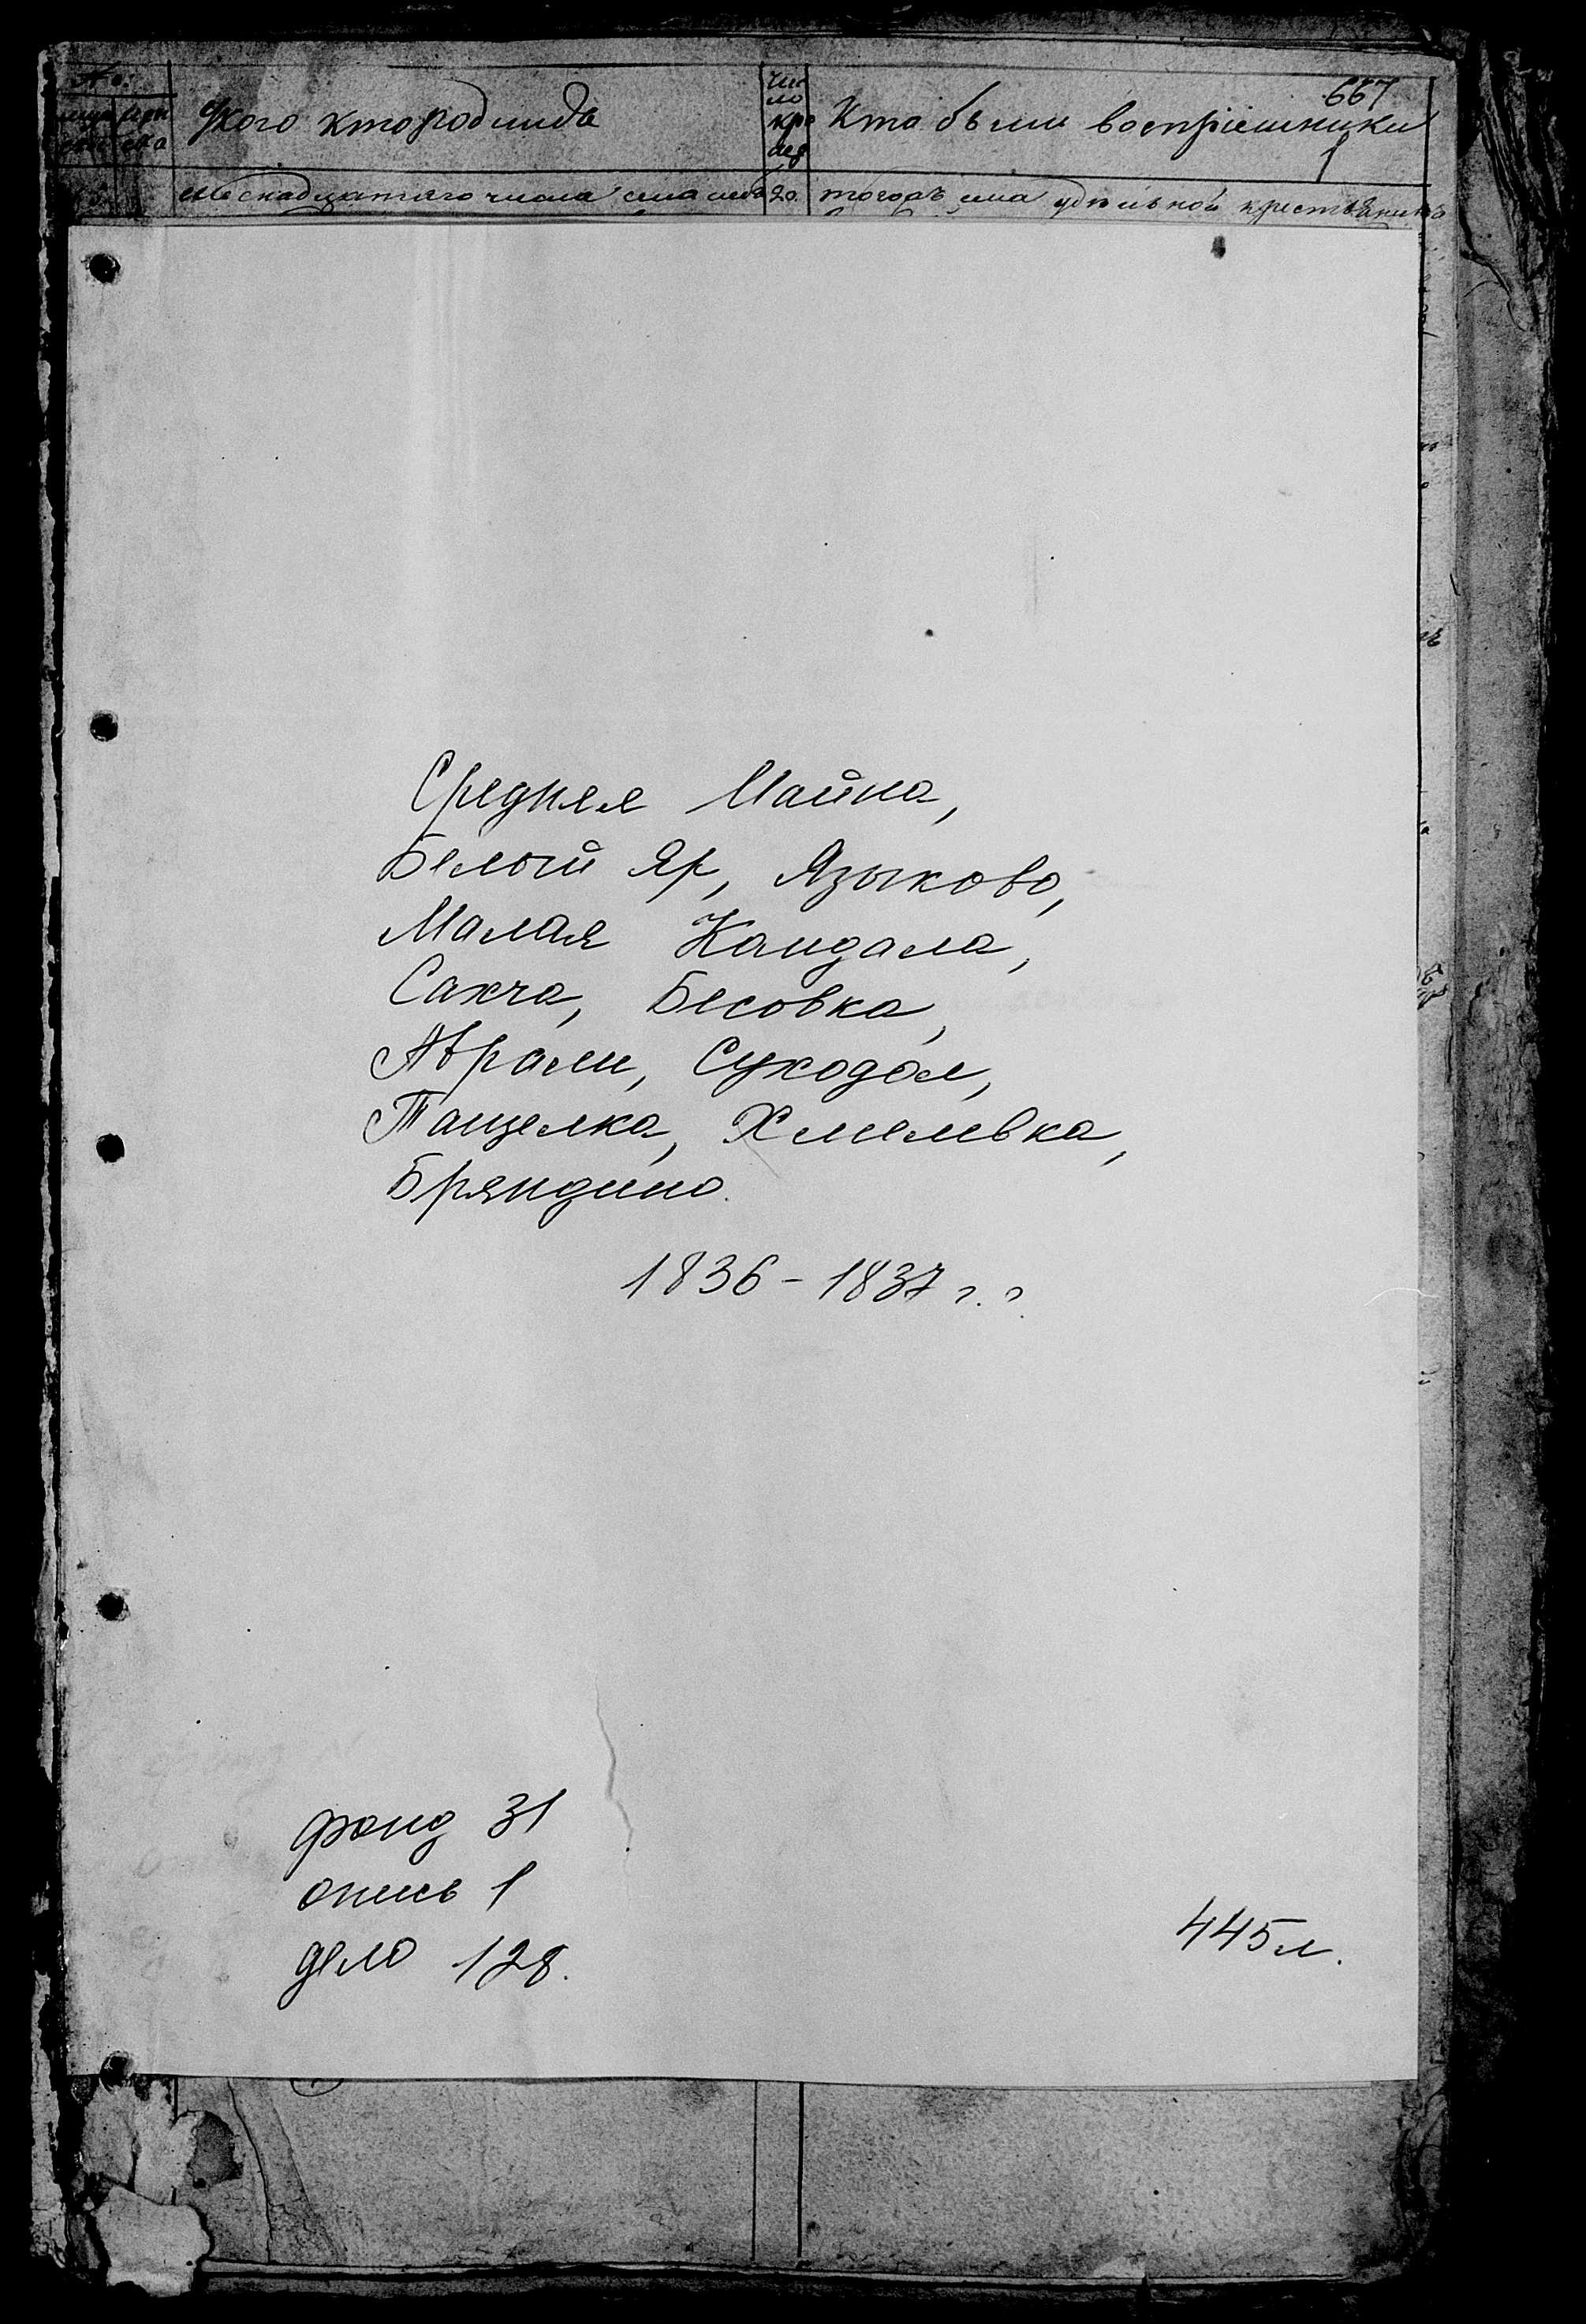 667
№:
У кого кто родился
чи
сло
кре
щ
Кто были восприемники
1
числа села
20.
тогожъ села удельной крестьянинъ
Средняя Майна,
Белый Яр, Языково,
Малая Кандала,
Сахча, Бесовка,
Аврали, Суходол,
Танцелка, Хмелевка,
Бряндино.
1836-1837 г.г.
фонд 31
опись 1
дело 128.
445 л.